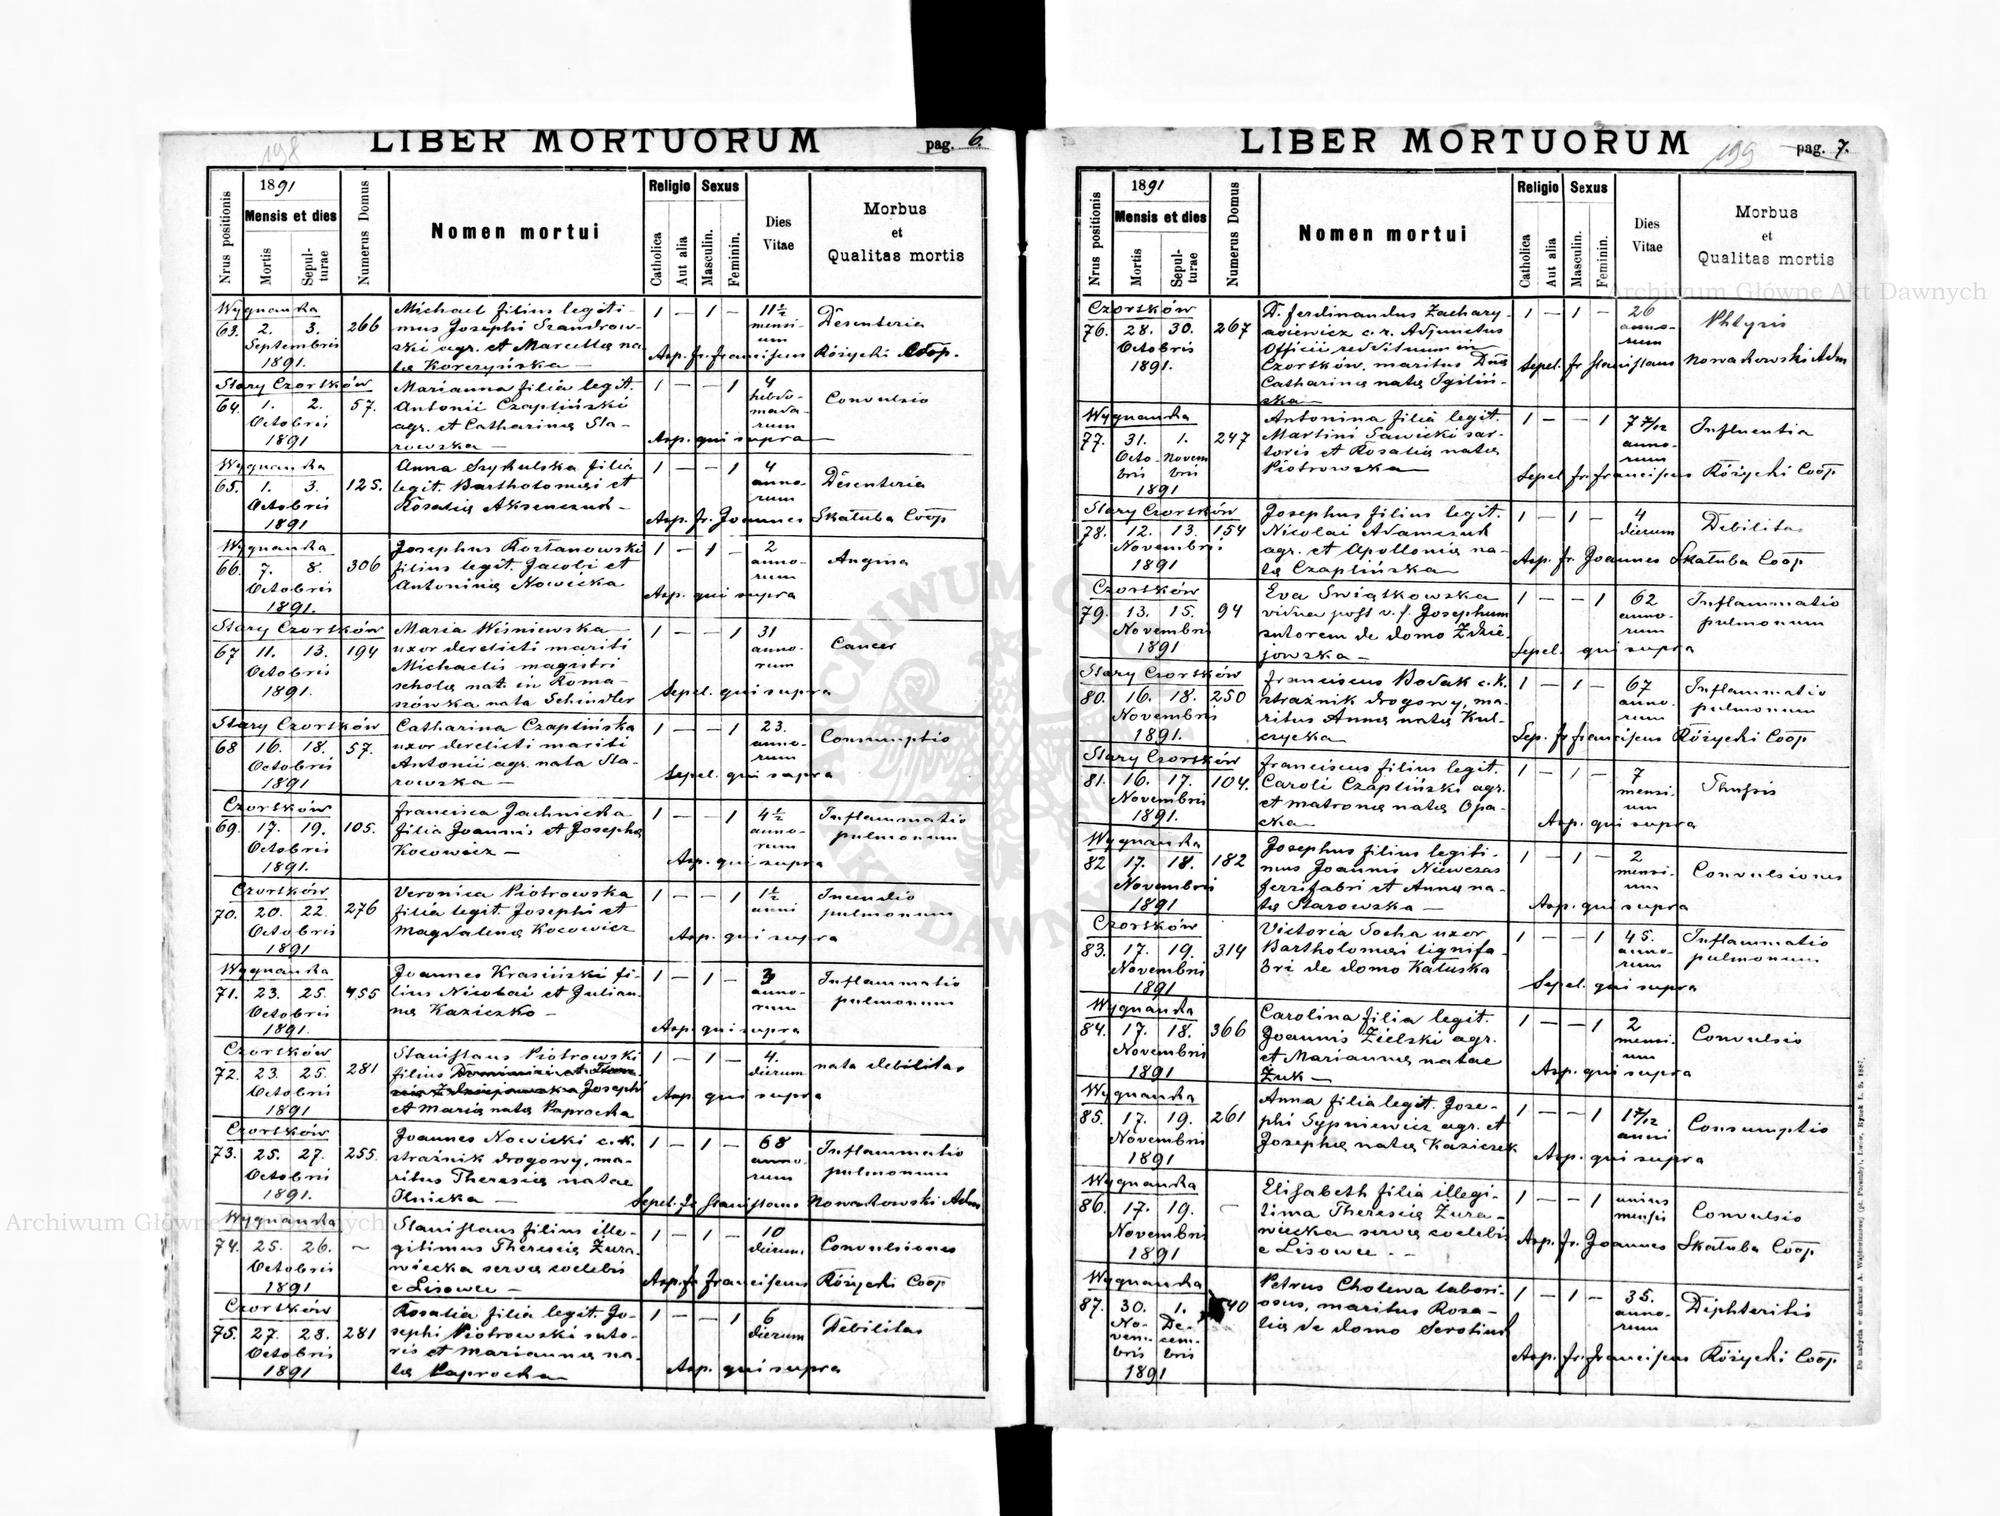 LIBER MORTUORUM
198
pag. 6.
Nrus positionis
1891
Mensis et dies
Mortis
Sepulturae
Numerus Domus
Nomen mortui
Religio
Catholica
Aut alia
Sexus
Masculin.
Feminin.
Dies Vitae
Morbus et Qualitas mortis
Wygnanka
63. 2. 3. Septembris 1891. 266
Michael filius legiti-
mus Josephi Szandrow-
ski agr. et Marcellae na-
ta Korczyńska —
1 — 1 — 11½ mensi-um Desenteria
Asp. fr. Franciscus Różycki Coop.
Stary Czortków
64. 1. 2. Octobris 1891 57.
Marianna filia legit.
Antonii Czapliński
agr. et Catharina Sta-
rowska —
1 — — 1 4 hebdo-mada-rum Convulsio
Asp. qui supra
Wygnanka
65. 1. 3. Octobris 1891 125.
Anna Szykulska filia
legit. Bartholomaei et
Rosalia Aksenczuk —
1 — — 1 4 anno-rum Desenteria
Asp. fr. Joannes Skałuba Coop
Wygnanka
66. 7. 8. Octobris 1891. 306
Josephus Kozłanowski
filius legit. Jacobi et
Antonina Nowicka
1 — 1 — 2 anno-rum Angina
Asp. qui supra
Stary Czortków
67 11. 13. Octobris 1891. 194
Maria Wiśniewska
uxor derelicti mariti
Michaelis magistri
schola nat. in Roma-
szówka nata Schindler
1 — — 1 31 anno-rum Cancer
Sepel. qui supra
Stary Czortków
68 16. 18. Octobris 1891 57.
Catharina Czaplińska
uxor derelicti mariti
Antonii agr. nata Sta-
rowska —
1 — — 1 23. anno-rum Consumptio
Sepel. qui supra
Czortków
69. 17. 19. Octobris 1891. 105.
Francisca Jachnicka
filia Joannis et Josepha
Kocowicz —
1 — — 1 4½ anno-rum Inflammatio pulmonum
Asp. qui supra
Czortków
70. 20. 22. Octobris 1891 276
Veronica Piotrowska
filia legit. Josephi et
Magdalena Kocowicz
1 — — 1 1½ anni Incendio pulmonum
Asp. qui supra
Wygnanka
71. 23. 25. Octobris 1891. 455
Joannes Krasiński fi-
lius Nicolai et Julian-
na Kaziczko —
1 — 1 — 3 anno-rum Inflammatio pulmonum
Asp. qui supra
Czortków
72. 23. 25. Octobris 1891 281
Stanislaus Piotrowski
filius
Josephi
et Maria nata Paprocka
1 — 1 — 4. dierum nata debilitas
Asp. qui supra
Czortków
73. 25. 27. Octobris 1891. 255.
Joannes Nowicki c. k.
strażnik drogowy, ma-
ritus Theresia natae
Ilnicka —
1 — 1 — 68 anno-rum Inflammatio pulmonum
Sepel. fr Stanislaus Nowakowski Adm
Wygnanka
74. 25. 26. Octobris 1891 ~
Stanislaus filius ille-
gitimus Theresia Żura-
wiecka serva coelebis
e Lisowce —
1 — 1 — 10 dierum Convulsiones
Asp. fr Franciscus Różycki Coop
Czortków
75. 27. 28. Octobris 1891 281
Rosalia filia legit. Jo-
sephi Piotrowski suto-
ris et Marianna na-
ta Paprocka
1 — — 1 6 dierum Debilitas
Asp. qui supra
LIBER MORTUORUM
199
pag. 7.
Nrus positionis
1891
Mensis et dies
Mortis
Sepulturae
Numerus Domus
Nomen mortui
Religio
Catholica
Aut alia
Sexus
Masculin.
Feminin.
Dies Vitae
Morbus et Qualitas mortis
Czortków
76. 28. 30. Octobris 1891. 267
D. Ferdinandus Zachary-
asiewicz c. r. Adjunctus
Officii reddituum in
Czortków, maritus Dnae
Catharina nata Igiliń-
ska —
1 — 1 — 26 anno-rum Phtysis
Sepel. fr Stanislaus Nowakowski Adm
Wygnanka
77. 31. 1. Octo-bris Novem-bris 1891 247
Antonina filia legit.
Martini Sawicki sar-
toris et Rosalia nata
Piotrowska —
1 — — 1 7 7/12 anno-rum Influentia
Sepel fr. Franciscus Różycki Coop
Stary Czortków
78. 12. 13. Novembris 1891 154
Josephus filius legit.
Nicolai Adamczuk
agr. et Apollonia na-
ta Czaplińska —
1 — 1 — 4 dierum Debilitas
Asp. fr. Joannes Skałuba Coop
Czortków
79. 13. 15. Novembris 1891 94
Eva Świątkowska
vidua post v. f. Josephum
sutorem de domo Zdzie-
jowska —
1 — — 1 62 anno-rum Inflammatio pulmonum
Sepel. qui supra
Stary Czortków
80. 16. 18. Novembris 1891. 250
Franciscus Bodak c. k.
strażnik drogowy, ma-
ritus Anna nata Kul-
czycka
1 — 1 — 67 anno-rum Inflammatio pulmonum
Sep. fr Franciscus Różycki Coop
Stary Czortków
81. 16. 17. Novembris 1891. 104.
Franciscus filius legit.
Caroli Czapliński agr.
et Matrona nata Opa-
cka —
1 — 1 — 7 mensi-um
Asp. qui supra
Wygnanka
82 17. 18. Novembris 1891 182
Josephus filius legiti-
mus Joannis Niewczas
ferrifabri et Anna na-
ta Starowska —
1 — 1 — 2 mensi-um Convulsiones
Asp. qui supra
Czortków
83. 17. 19. Novembris 1891 314
Victoria Socha uxor
Bartholomaei lignifa-
bri de domo Kałuska
1 — — 1 45. anno-rum Inflammatio pulmonum
Sepel. qui supra
Wygnanka
84. 17. 18. Novembris 1891 366
Carolina filia legit.
Joannis Zielski agr.
et Marianna natae
Żuk —
1 — — 1 2 mensi-um Convulsio
Asp. qui supra
Wygnanka
85. 17. 19. Novembris 1891 261
Anna filia legit. Jose-
phi Sypniewicz agr. et
Josepha nata Kaziczek
1 — — 1 1 7/12 anni Consumptio
Asp. qui supra
Wygnanka
86. 17. 19. Novembris 1891 ~
Elisabeth filia illegi-
tima Theresia Żura-
wiecka serva coelebis
e Lisowce —
1 — — 1 unius mensis Convulsio
Asp. fr. Joannes Skałuba Coop
Wygnanka
87. 30. 1. No-vem-bris De-cem-bris 1891 40
Petrus Cholewa labori-
osus, maritus Rosa-
lia de domo Serotiuk
1 — 1 — 35. anno-rum Diphteritis
Asp. fr. Franciscus Różycki Coop
Archiwum Główne Akt Dawnych
Archiwum Główne Akt Dawnych